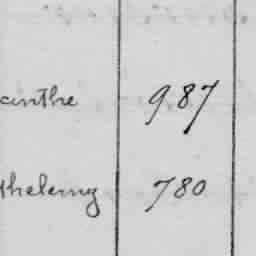 anthe 987
thelemy 780